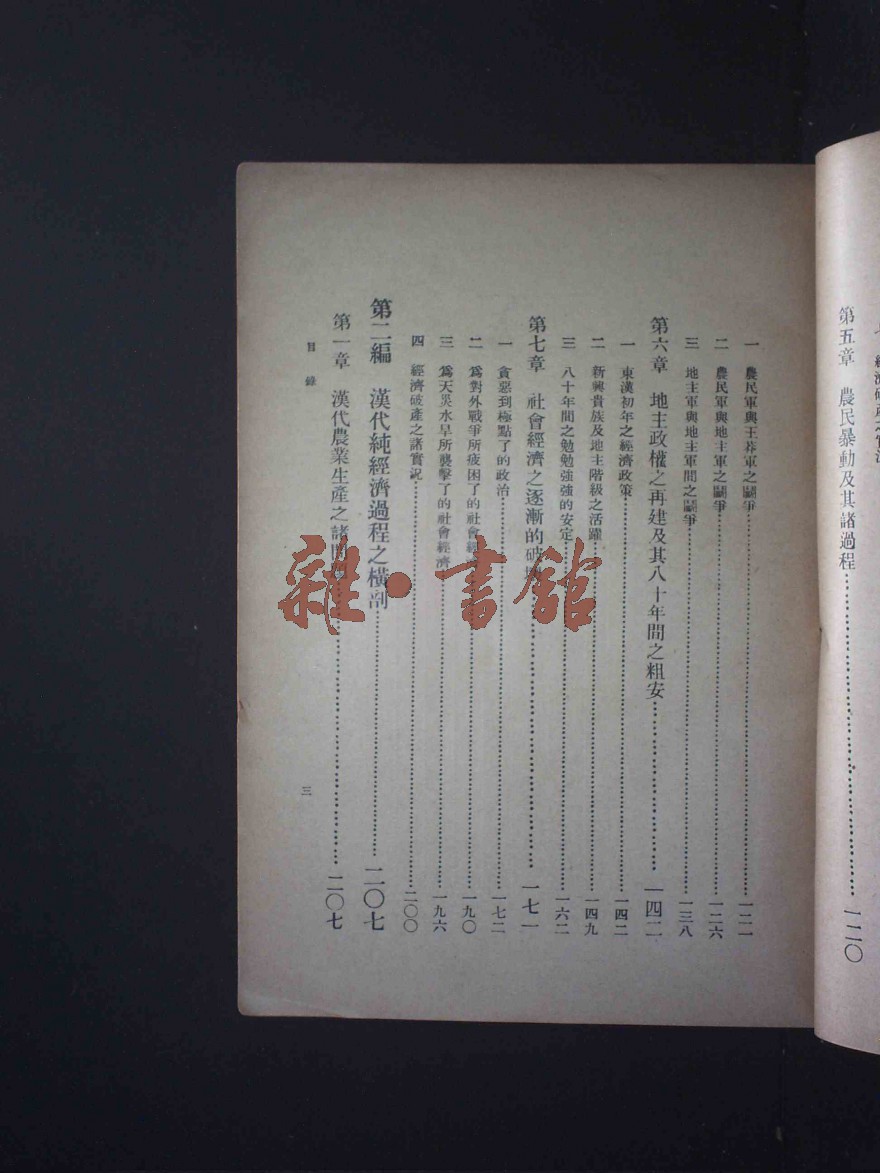 第五章　農民暴動及其諸過程……一二〇
一　農民軍與王莽軍之鬭爭……一二一
二　農民軍與地主軍之鬭爭……一二六
三　地主軍與地主軍間之鬭爭……一三八
第六章　地主政權之再建及其八十年間之粗安……一四二
一　東漢初年之經濟政策……一四二
二　新興貴族及地主階級之活躍……一四九
三　八十年間之勉勉強強的安定……一六二
第七章　社會經濟之逐漸的破……一七一
一　貪惡到極點了的政治……一七二
二　爲對外戰爭所疲困了的社會經……一九〇
三　爲天災水旱所襲擊了的社會經濟……一九六
四　經濟破產之諸實況……二〇〇
第二編　漢代純經濟過程之橫剖……二〇七
第一章　漢代農業生產之諸問……二〇七
目錄
三
雜·書館